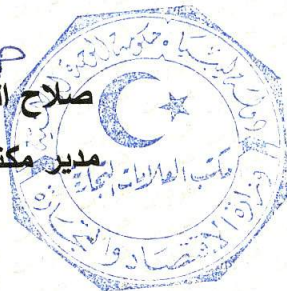 صلاح ال
مدير مكتب
دولة ليبيا
حكومة
مكتب العلاقات التجارية
وزارة الاقتصاد والتجارة